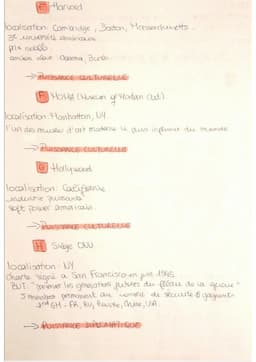 E Harvard
localisation: Cambridge, Boston, Massachusetts.
3e université américaine
prix nobels
anciens élèves: Obama, Bush
→ PUISSANCE CULTURELLE
F MOMA (Museum of Modern Art)
localisation: Manhattan, NY.
l'un des musées d'art moderne le plus influent du monde
→ PUISSANCE CULTURELLE
G Hollywood
localisation: Californie
industrie puissante
soft power américain.
→ PUISSANCE CULTURELLE
H Siège ONU
localisation: NY
charte signée à San Francisco en juin 1945
BUT: "préserver les générations futures du fléau de la guerre"
5 membres permanents du conseil de sécurité = gagnants
2nd GM - FR, RU, Russie, Chine, USA.
→ PUISSANCE DIPLOMATIQUE